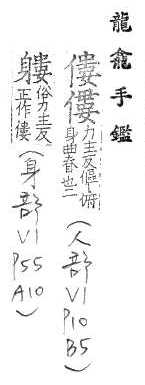 龍龕手鑑
僂僂力主反傴俯身曲脊也二(人部V1P10B5)
軁俗力主反正作僂(身部V1P55A10)